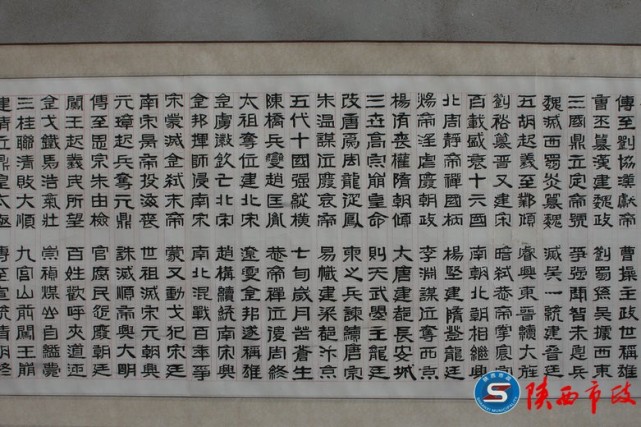 傳至劉協漢獻帝 曹操主政世稱雄
曹丕篡漢建魏政 劉蜀孫吳據西東
三國鼎立定帝號 爭強鬥智未罷兵
魏滅西蜀炎篡魏 滅吳一統建晉廷
五胡起義至鄴 睿興東晉續大旌
劉裕篡晉又建宋 暗弑恭帝掌寰
百載盛衰十六國 南朝北朝相繼興
北周靜帝禪國柄 楊堅建隋登龍廷
煬帝淫虐廢朝政 李淵謀位奪西京
楊侑喪權隋朝傾 大唐建都長安城
三立高宗崩皇命 則天武曌主龍廷
改唐爲周龍從鳳 柬之兵諫續唐宗
朱温謀位廢哀帝 易幟建梁都汴京
五代十國強縱橫 七旬歲月苦蒼生
陳橋兵變趙匡胤 恭帝禪位後周終
太祖奪位建北宋 遼夏金邦遂稱雄
皇虜徽欽亡北宋 趙構續統南宋興
金邦揮師侵南宋 南北混戰百年爭
宋蒙滅金弑末帝 蒙又動戈犯宋廷
南宋昺帝投海喪 世祖滅宋元朝興
元璋起兵奪元鼎 誅滅順帝興大明
傳至思宗朱由檢 官腐民怨廢朝廷
闖王起義民所望 百姓歡呼夾道迎
金戈鐵馬浩氣壯 崇禎煤山自縊薨
三桂聯清敗大順 九宫山前闖王崩
建清定鼎皇太極 傳至宣統清朝終
陕西市政